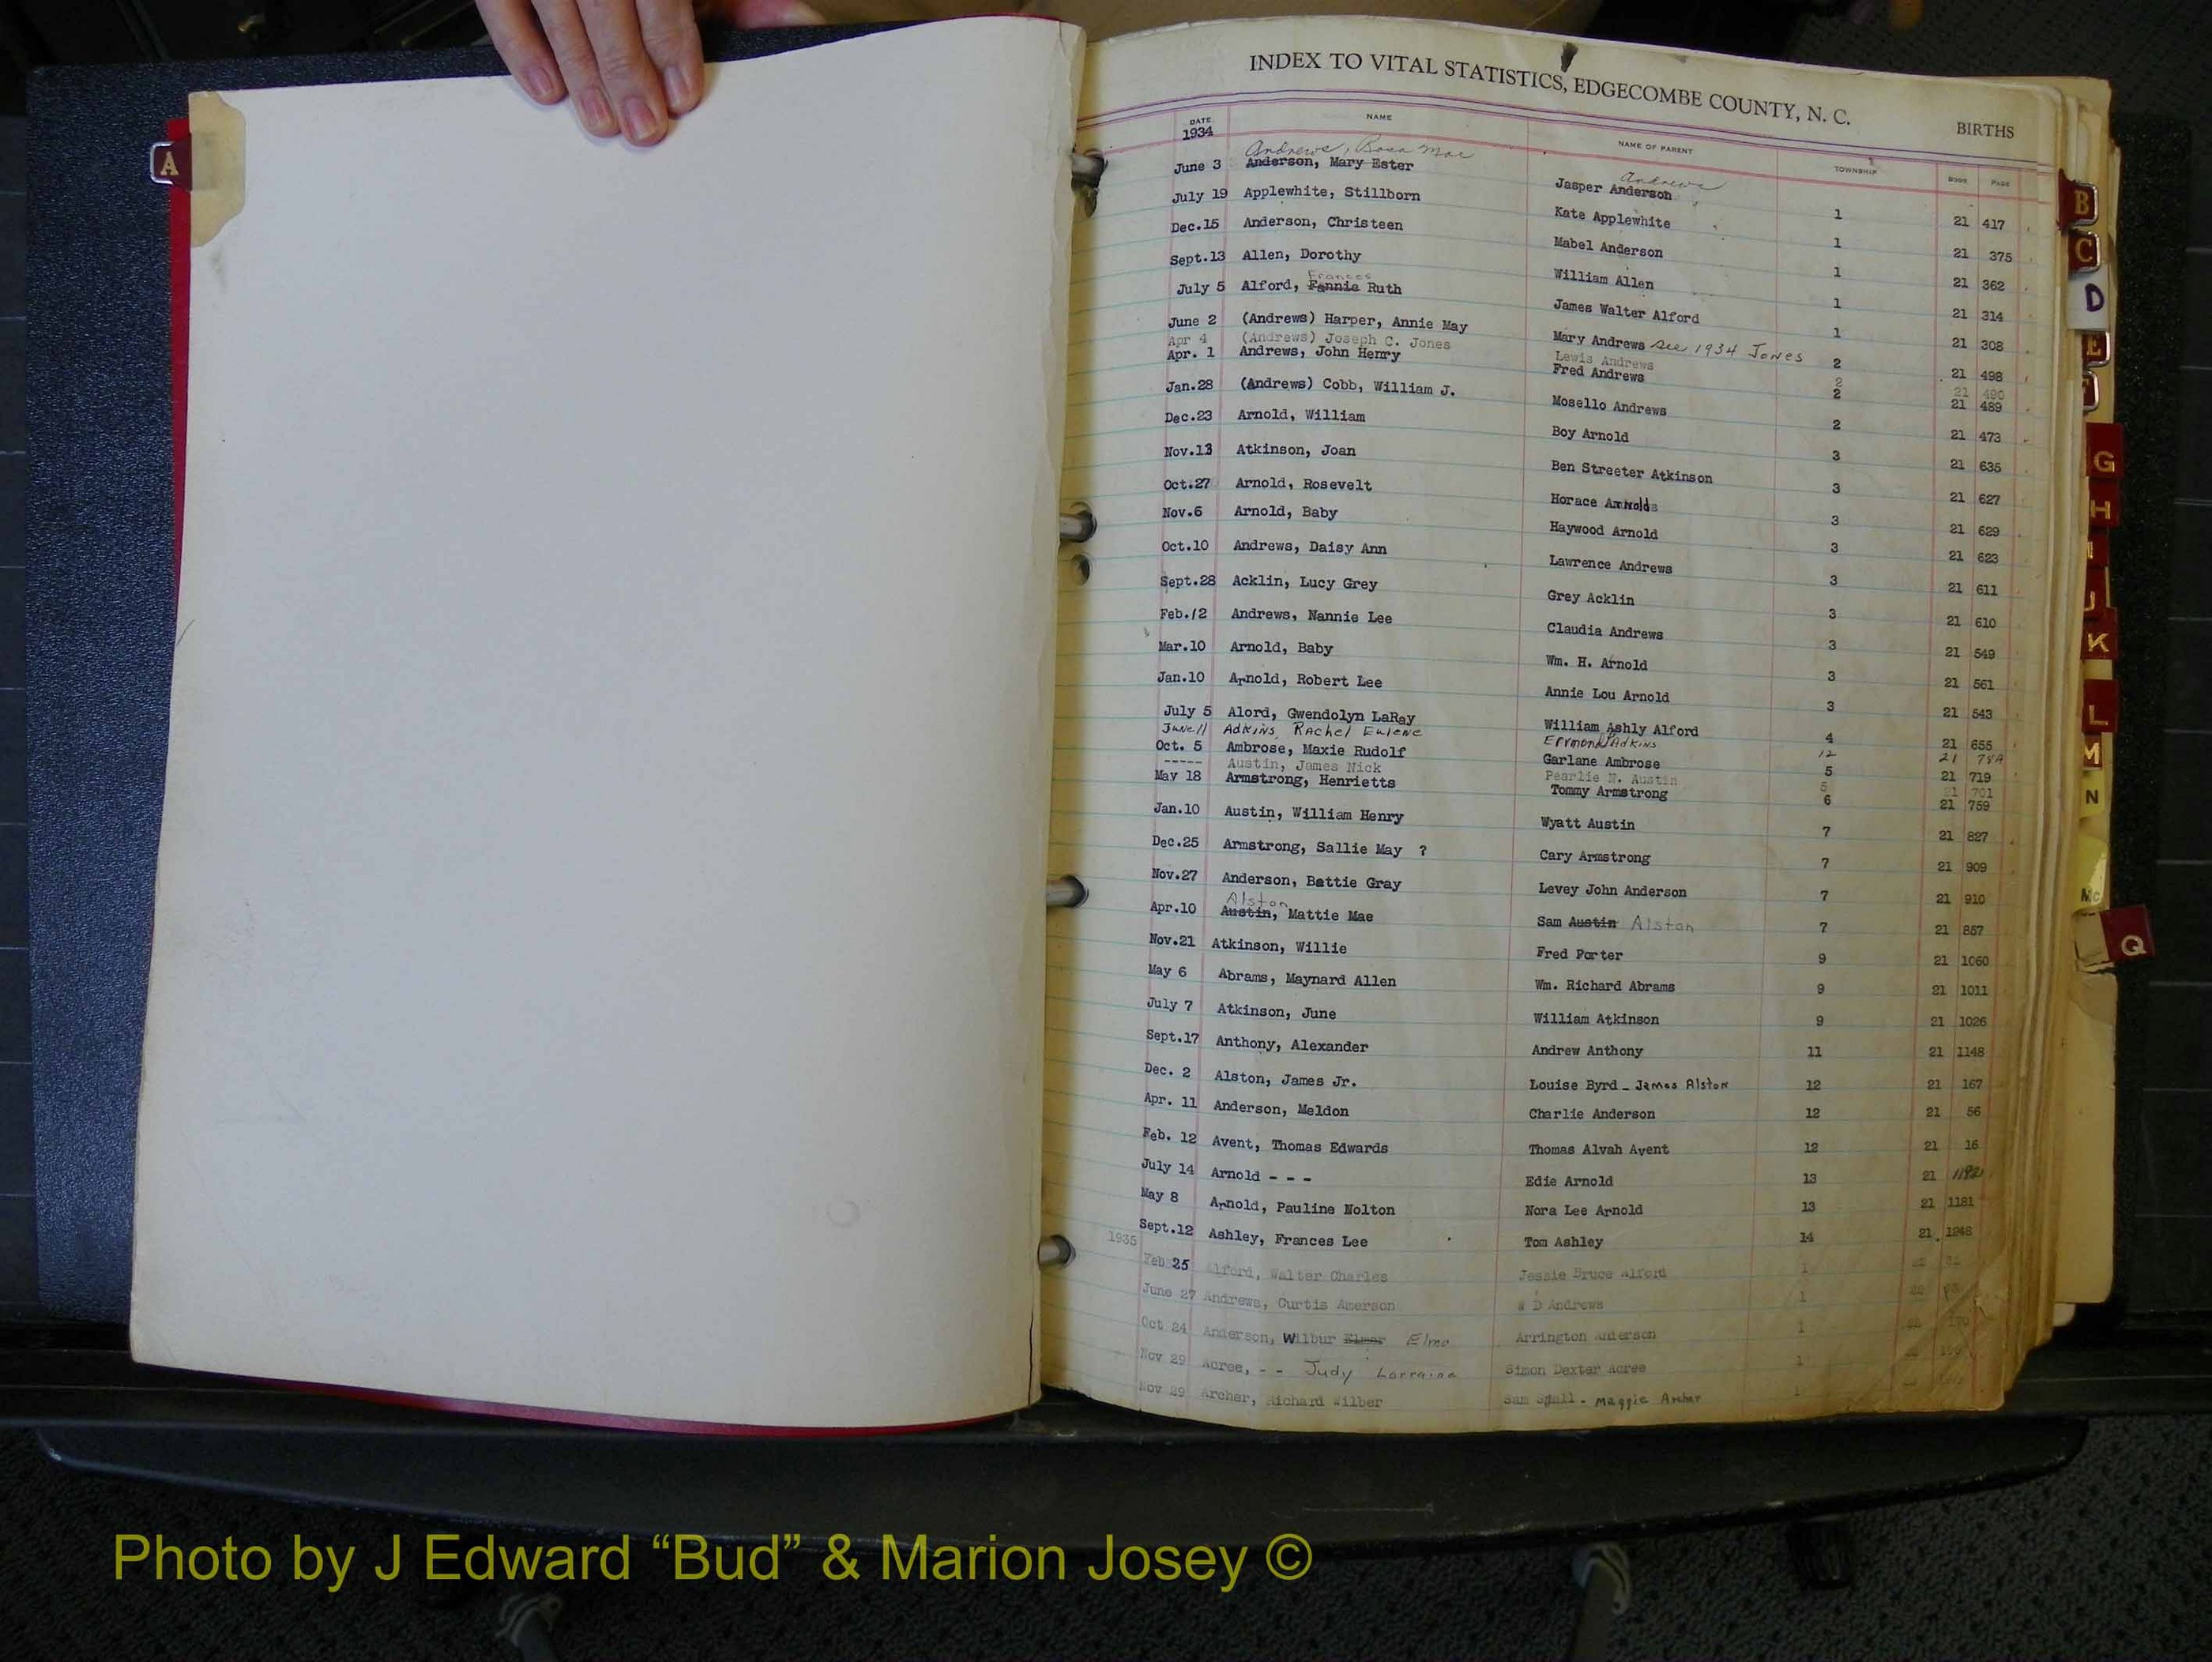 A
INDEX TO VITAL STATISTICS, EDGECOMBE COUNTY, N. C. BIRTHS
DATE NAME NAME OF PARENT TOWNSHIP BOOK PAGE
1934
Andrews, Rosa Mae Andrews
June 3 Anderson, Mary Ester Jasper Anderson 1 21 417
July 19 Applewhite, Stillborn Kate Applewhite 1 21 375
Dec.15 Anderson, Christeen Mabel Anderson 1 21 362
Sept.13 Allen, Dorothy William Allen 1 21 314
Frances
July 5 Alford, Fannie Ruth James Walter Alford 1 21 308
June 2 (Andrews) Harper, Annie May Mary Andrews see 1934 Jones 2 21 498
Apr 4 (Andrews) Joseph C. Jones Lewis Andrews 2 21 490
Apr. 1 Andrews, John Henry Fred Andrews 2 21 489
Jan.28 (Andrews) Cobb, William J. Mosello Andrews 2 21 473
Dec.23 Arnold, William Boy Arnold 3 21 635
Nov.13 Atkinson, Joan Ben Streeter Atkinson 3 21 627
Oct.27 Arnold, Rosevelt Horace Arnolds 3 21 629
Nov.6 Arnold, Baby Haywood Arnold 3 21 623
Oct.10 Andrews, Daisy Ann Lawrence Andrews 3 21 611
Sept.28 Acklin, Lucy Grey Grey Acklin 3 21 610
Feb.12 Andrews, Nannie Lee Claudia Andrews 3 21 549
Mar.10 Arnold, Baby Wm. H. Arnold 3 21 561
Jan.10 Arnold, Robert Lee Annie Lou Arnold 3 21 543
July 5 Alord, Gwendolyn LaRay William Ashly Alford 4 21 655
June 11 Adkins, Rachel Eulene Ermond Adkins 12 21 78A
Oct. 5 Ambrose, Maxie Rudolf Garlane Ambrose 5 21 719
----- Austin, James Nick Pearlie N. Austin 5 21 701
May 18 Armstrong, Henrietts Tommy Armstrong 6 21 759
Jan.10 Austin, William Henry Wyatt Austin 7 21 827
Dec.25 Armstrong, Sallie May ? Cary Armstrong 7 21 909
Nov.27 Anderson, Battie Gray Levey John Anderson 7 21 910
Alston
Apr.10 Austin, Mattie Mae Sam Austin Alston 7 21 857
Nov.21 Atkinson, Willie Fred Porter 9 21 1060
May 6 Abrams, Maynard Allen Wm. Richard Abrams 9 21 1011
July 7 Atkinson, June William Atkinson 9 21 1026
Sept.17 Anthony, Alexander Andrew Anthony 11 21 1148
Dec. 2 Alston, James Jr. Louise Byrd - James Alston 12 21 167
Apr. 11 Anderson, Meldon Charlie Anderson 12 21 56
Feb. 12 Avent, Thomas Edwards Thomas Alvah Avent 12 21 16
July 14 Arnold - - - Edie Arnold 13 21
May 8 Arnold, Pauline Nolton Nora Lee Arnold 13 21 1181
Sept.12 Ashley, Frances Lee Tom Ashley 14 21 1248
1935
Feb 25 Alford, Walter Charles Jessie Bruce Alford 1 22
June 27 Andrews, Curtis Amerson W D Andrews 1 22
Oct 24 Anderson, Wilbur Elmer Elmo Arrington Anderson 1 170
Nov 29 Acree, - - Judy Lorraine Simon Dexter Acree 1
Nov 29 Archer, Richard Wilber Sam - Maggie Archer 1
B
C
D
E
G
H
J
K
L
M
N
Mc
Q
Photo by J Edward “Bud” & Marion Josey ©